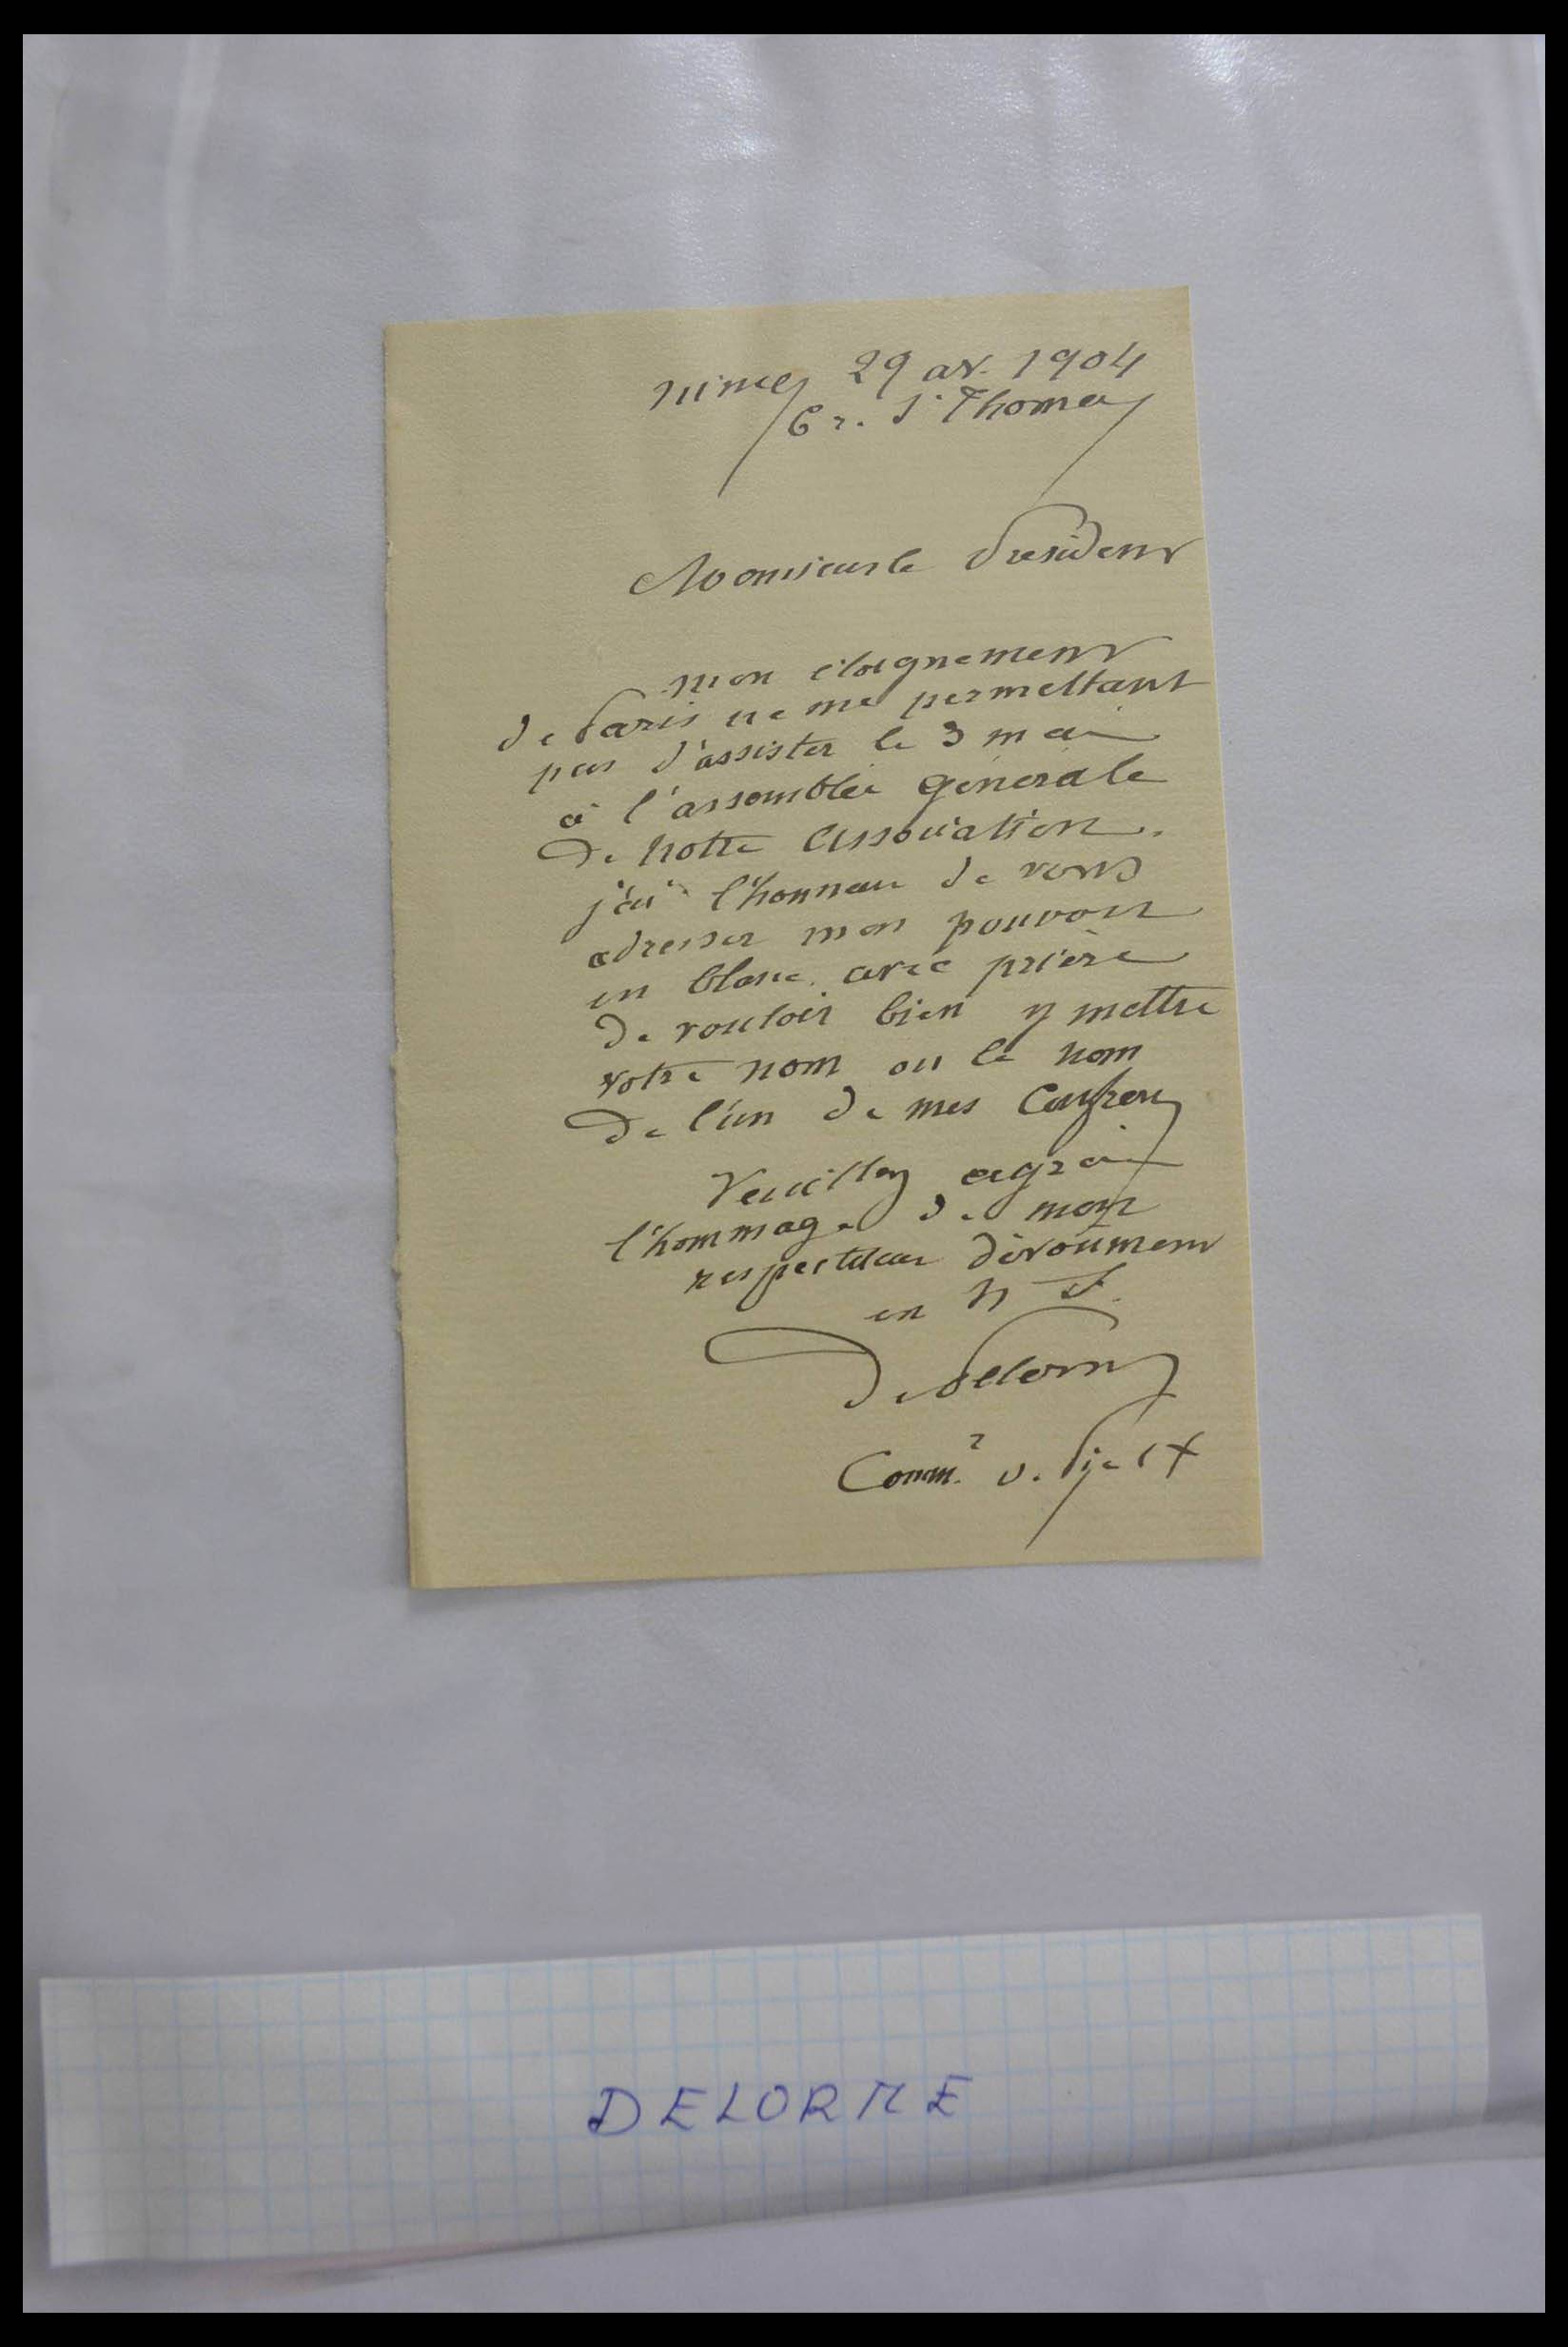 Nimes 29 av. 1904
6 r. St Thomas
Monsieur le President
Mon éloignement
de Paris ne me permettant
pas d'assister le 3 mai
à l'assemblée générale
de notre association.
j'ai l'honneur de vous
adresser mon pouvoir
en blanc avec prière
de vouloir bien y mettre
votre nom ou le nom
de l'un de mes Confreres
Veuillez agréer
l'hommage de mon
respectueux dévoûment
en N S.
Comm.r de Pie IX
DELORME